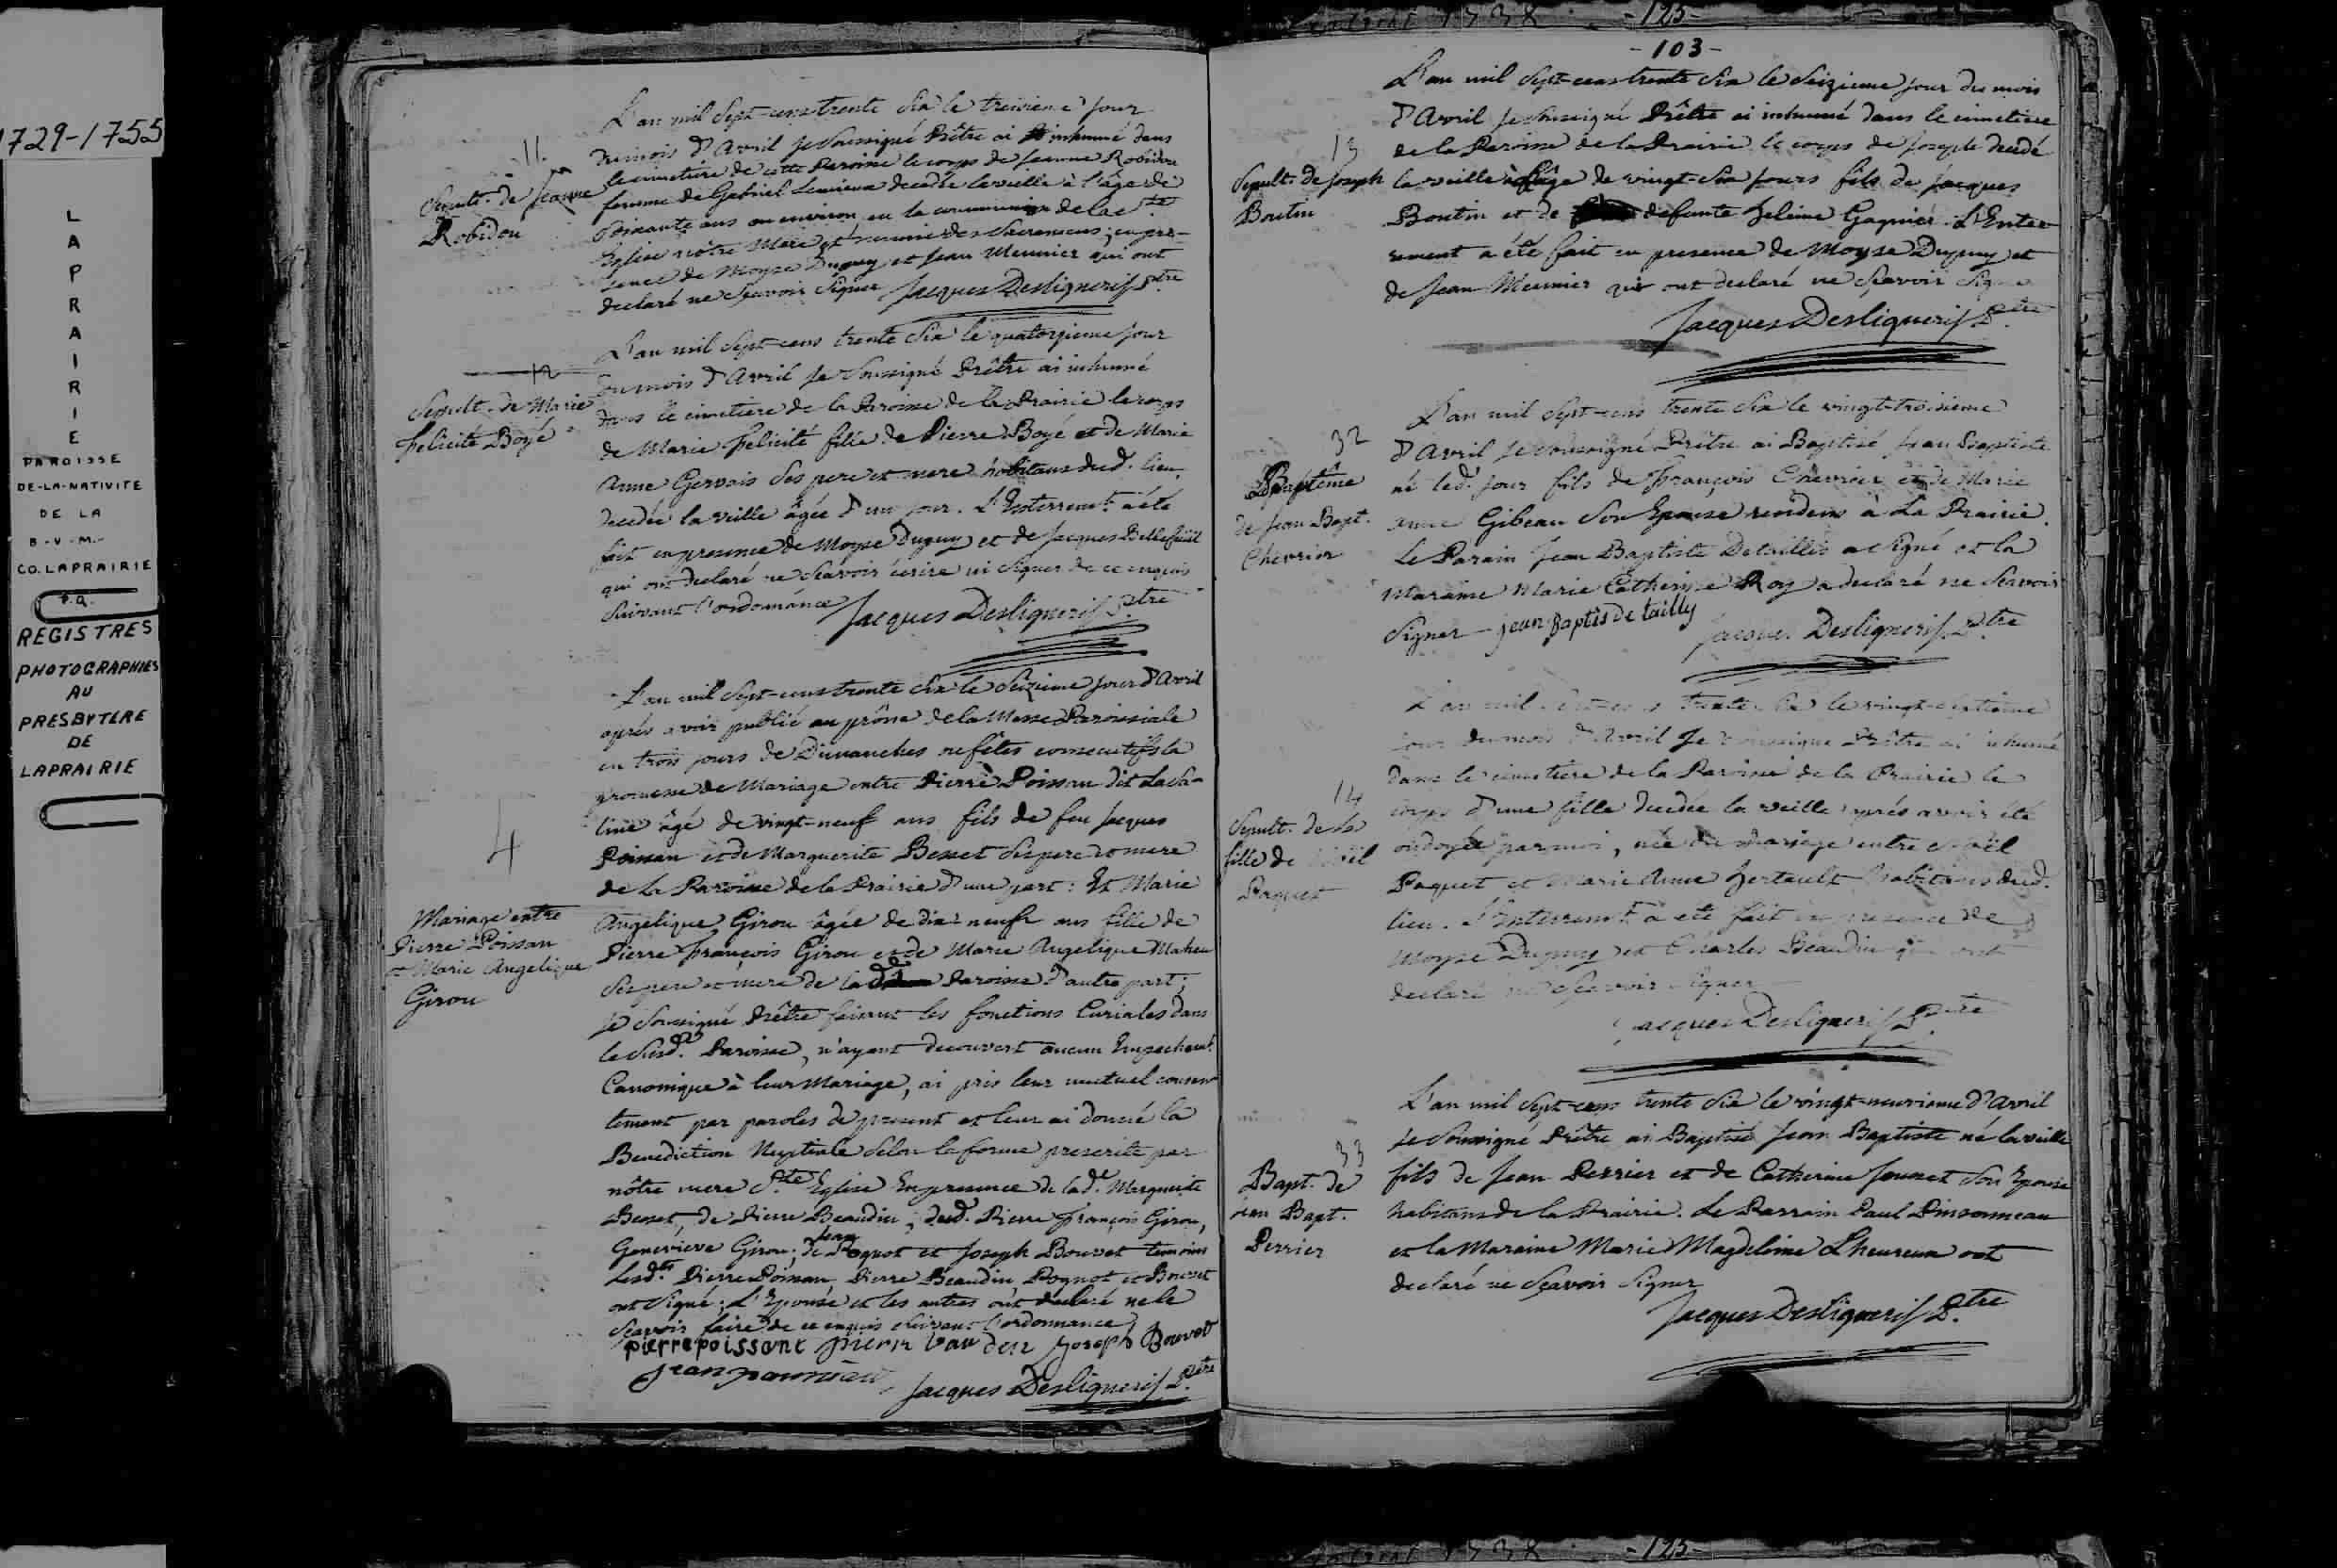 1729-1755
L
A
P
R
A
I
R
I
E
PAROISSE
DE-LA-NATIVITE
DE LA
B-V-M-
CO. LAPRAIRIE
P.Q.
REGISTRES
PHOTOGRAPHIES
AU
PRESBYTERE
DE
LAPRAIRIE
11.
Sepult. de Jeanne
Robidou
L'an mil Sept-cens trente Six le treizieme jour
du mois d'Avril Je Soussigné Prêtre ai inhumé dans
le cimetiere de cette Paroisse le corps de Jeanne Robidou
femme de Gabriel Lemieux decedée la veille à l'âge de
Soixante ans ou environ en la communion de la Ste
Eglise nôtre Mere et munie des Sacremens, en pre-
sence de Moyse Dupuy et Jean Meunier qui ont
declaré ne Sçavoir Signer Jacques Desligneris Ptre
12
Sepult. de Marie
Felicité Boyé
L'an mil Sept-cens trente Six le quatorzieme jour
du mois d'Avril Je Soussigné Prêtre ai inhumé
dans le cimetiere de la Paroisse de la Prairie le corps
de Marie Felicité fille de Pierre Boyé et de Marie
Anne Gervais Ses pere et mere habitans dud. lieu
decedée la veille âgée d'un jour. L'Enterremt. a été
fait en presence de Moyse Dupuy et de Jacques Bellefeuil
qui ont declaré ne Sçavoir écrire ni Signer de ce enquis
Suivant l'ordonnance Jacques Desligneris Ptre
4
Mariage entre
Pierre Poissan
et Marie Angelique
Girou
L'an mil Sept-cens trente Six le Seizieme jour d'Avril
après avoir publié au prône de la Messe Paroissiale
en trois jours de Dimanches ou fêtes consecutifs la
promesse de Mariage entre Pierre Poissan dit Lasa-
line âgé de vingt-neuf ans fils de feu Jacques
Poissan et de Marguerite Besset Ses pere et mere
de la Paroisse de la Prairie d'une part: Et Marie
Angelique Girou âgée de dix neuf ans fille de
Pierre François Girou et de Marie Angelique Maheu
Ses pere et mere de la de Paroisse d'autre part;
Je Soussigné Prêtre faisant les fonctions Curiales dans
la Susd. Paroisse, n'ayant decouvert aucun Empechemt.
Canonique à leur Mariage, ai pris leur mutuel consen
tement par paroles de present et leur ai donné la
Benediction Nuptiale Selon la forme prescrite par
nôtre mere Ste Eglise En presence de lad. Marguerite
Besset, de Pierre Beaudin, dud. Pierre François Girou,
Genevieve Girou, de Jean Pognot et Joseph Bouvet temoins
Lesdts. Pierre Poissan, Pierre Beaudin Pognot et Bouvet
ont Signé; L'Epouse et les autres ont declaré ne le
Sçavoir faire de ce enquis Suivant l'ordonnance
pierre poissant pierre baudin Joseph Bouvet
Jacques Desligneris Ptre
-125-
-103-
13
Sepult. de Joseph
Boutin
L'an mil Sept-cens trente Six le Seizieme jour du mois
d'Avril Je Soussigné Prêtre ai inhumé dans le cimetiere
de la Paroisse de la Prairie le corps de Joseph decedé
la veille à l'âge de vingt-Six jours fils de Jacques
Boutin et de defunte Helene Gagnier. L'Enter-
rement a été fait en presence de Moyse Dupuy et
de Jean Meunier qui ont declaré ne Sçavoir Signer
Jacques Desligneris Ptre
32
Baptême
de Jean Bapt.
Chevrier
L'an mil Sept-cens trente Six le vingt-troisieme
d'Avril Je Soussigné Prêtre ai Baptisé Jean Baptiste
né led. jour fils de François Chevrier et de Marie
Anne Gibeau Son Epouse residens à La Prairie.
Le Parain Jean Baptiste Detaillis a Signé et la
Maraine Marie Catherine Roy a declaré ne Sçavoir
Signer - jean Baptis de tailly Jacques Desligneris Ptre
14
Sepult. de la
fille de Noël
Paquet
L'an mil Sept-cens trente Six le vingt-septieme
jour du mois d'Avril Je Soussigné Prêtre ai inhumé
dans le cimetiere de la Paroisse de la Prairie le
corps d'une fille decedée la veille après avoir été
ondoyée par moi, née du mariage entre Noël
Paquet et Marie Anne Hertault habitans dud.
lieu. L'Enterremt. a été fait en presence de
Moyse Dupuy et Charles Beaudin qui ont
declaré ne Sçavoir Signer
Jacques Desligneris Ptre
33
Bapt. de
Jean Bapt.
Perrier
L'an mil Sept-cens trente Six le vingt-neuvieme d'Avril
Je Soussigné Prêtre ai Baptisé Jean Baptiste né la veille
fils de Jean Perrier et de Catherine Jounet Son Epouse
habitans de la Prairie. Le Parrain Paul Pinsonneau
et la Maraine Marie Magdeleine L'heureux ont
declaré ne Sçavoir Signer
Jacques Desligneris Ptre
-125-